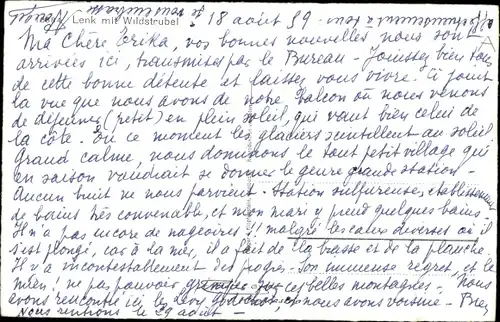 Lenk mit Wildstrubel
18 août 59.
Ma Chère Erika, vos bonnes nouvelles nous sont
arrivées ici, transmises par le Bureau - Jouissez bien tous
de cette bonne détente et laissez vous vivre. Ci joint
la vue que nous avons de notre balcon où nous venons
de déjeuner (petit) en plein soleil, qui vaut bien celui de
la côte. En ce moment les glaciers scintillent au soleil
Grand calme, nous dominons le tout petit village qui
en saison voudrait se donner le genre grande station -
Aucun bruit ne nous parvient. Station sulfureuse, établissement
de bains très convenable, et mon mari y prend quelques bains.
Il n'a pas encore de nageoires !! malgré les eaux diverses où il
s'est plongé, car à la mer, il a fait de la brasse et de la planche.
Il y a incontestablement des progrès - Son immense regret, et le
mien ! ne pas pouvoir grimper sur ces belles montagnes. Nous
avons rencontré ici les et nous avons voisiné - Bref
Nous rentrons le 29 août -